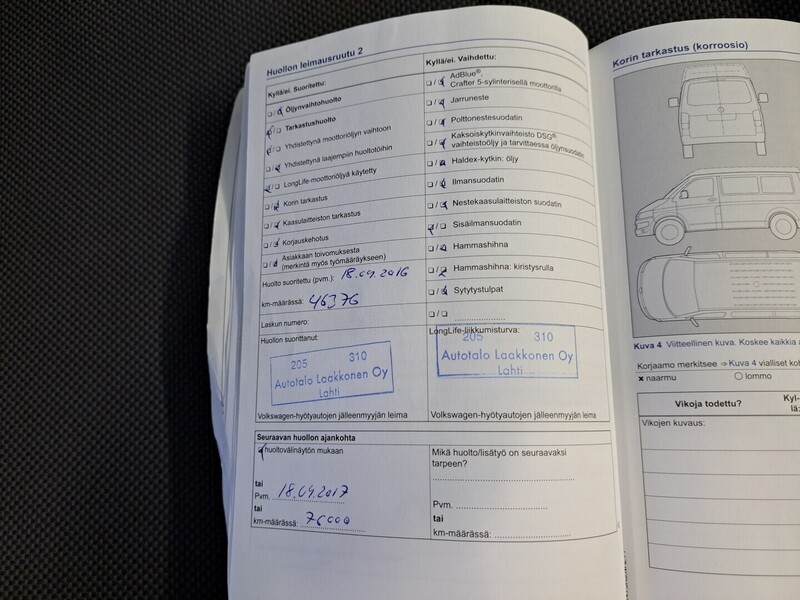 Huollon leimausruutu 2
Kyllä/ei. Suoritettu:
Öljynvaihtohuolto
Tarkastushuolto
Yhdistettynä moottoriöljyn vaihtoon
Yhdistettynä laajempiin huoltotöihin
LongLife-moottoriöljyä käytetty
Korin tarkastus
Kaasulaitteiston tarkastus
Korjauskehotus
Asiakkaan toivomuksesta
(merkintä myös työmääräykseen)
Huolto suoritettu (pvm.): 18.09.2016
km-määrässä: 46376
Laskun numero:
Huollon suorittanut:
205 310
Autotalo Laakkonen Oy
Lahti
Volkswagen-hyötyautojen jälleenmyyjän leima
Kyllä/ei. Vaihdettu:
AdBlue®,
Crafter 5-sylinterisellä moottorilla
Jarruneste
Polttonestesuodatin
Kaksoiskytkinvaihteisto DSG®:
vaihteistoöljy ja tarvittaessa öljynsuodatin
Haldex-kytkin: öljy
Ilmansuodatin
Nestekaasulaitteiston suodatin
Sisäilmansuodatin
Hammashihna
Hammashihna: kiristysrulla
Sytytystulpat
LongLife-liikkumisturva:
205 310
Autotalo Laakkonen Oy
Lahti
Volkswagen-hyötyautojen jälleenmyyjän leima
Seuraavan huollon ajankohta
huoltovälinäytön mukaan
tai
Pvm. 18.09.2017
tai
km-määrässä: 76000
Mikä huolto/lisätyö on seuraavaksi
tarpeen?
Pvm.
tai
km-määrässä:
Korin tarkastus (korroosio)
Kuva 4 Viitteellinen kuva. Koskee kaikkia
Korjaamo merkitsee ⇒ Kuva 4 vialliset
× naarmu ○ lommo
Vikoja todettu?
Kyl-
lä:
Vikojen kuvaus: